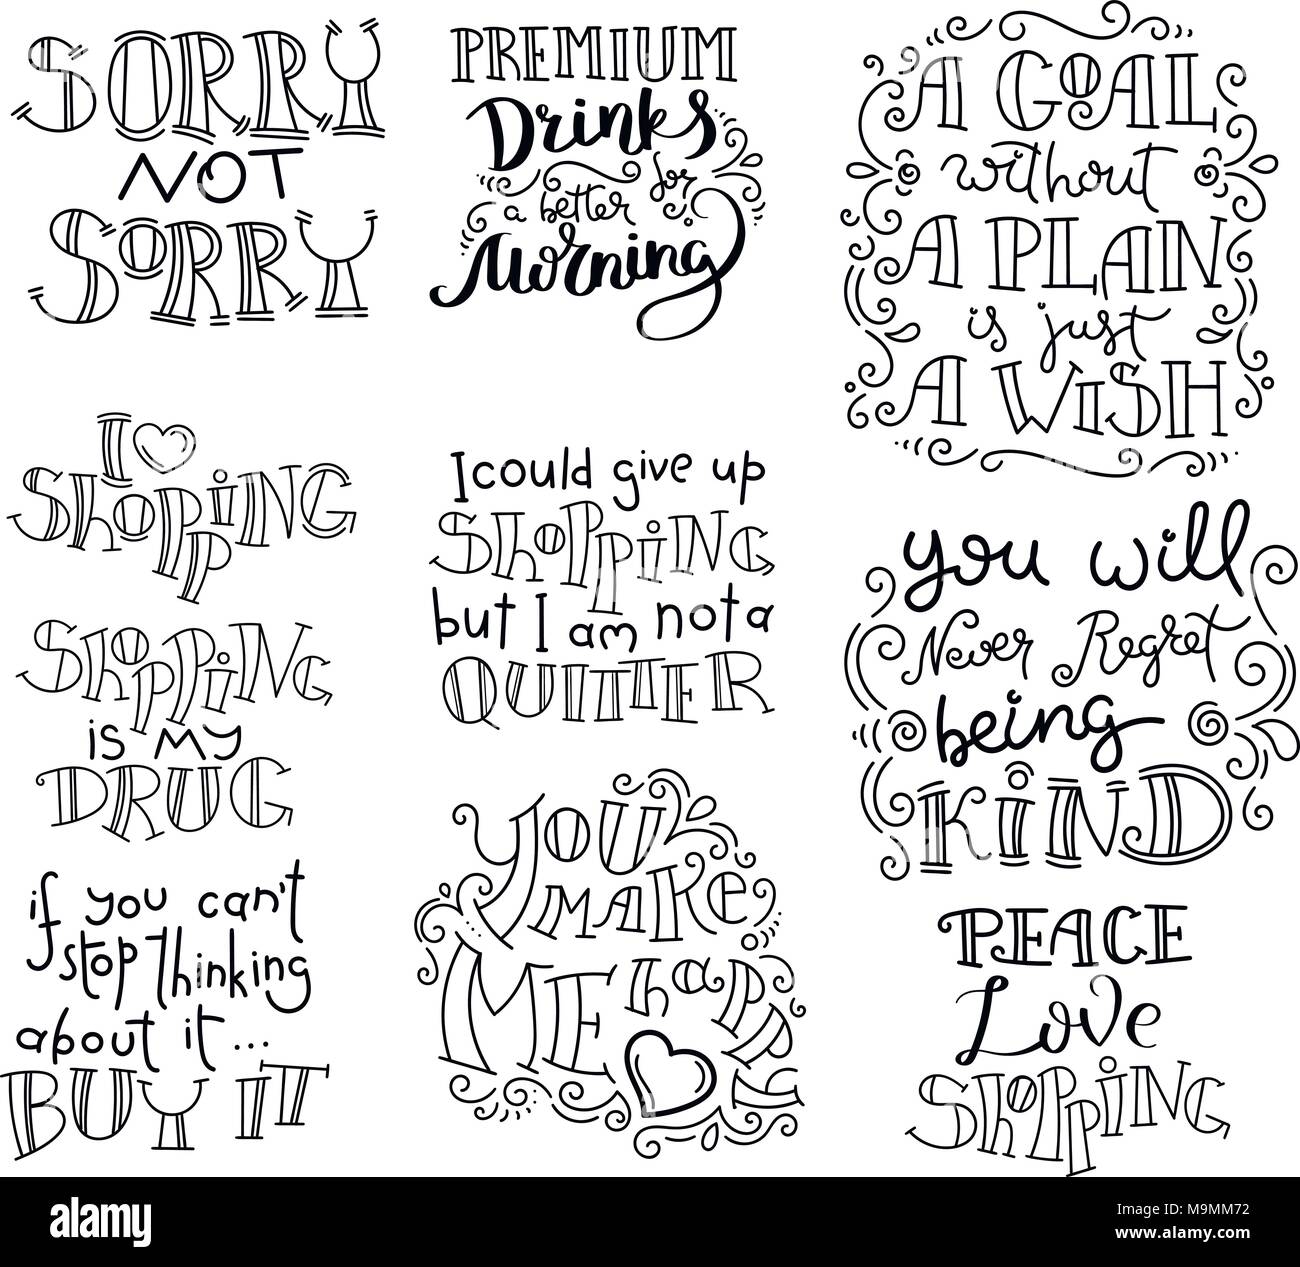 SORRY
NOT
SORRY
PREMIUM
Drinks
for
a better
Morning
A GOAL
without
A PLAN
is just
A WISH
I
SHOPPING
SHOPPING
is MY
DRUG
if you can't
stop thinking
about it...
BUY IT
I could give up
SHOPPING
but I am not a
QUITTER
YOU
MAKE
ME happy
you will
Never Regret
being
KIND
PEACE
Love
SHOPPING
alamy
Image ID: M9MM72
www.alamy.com